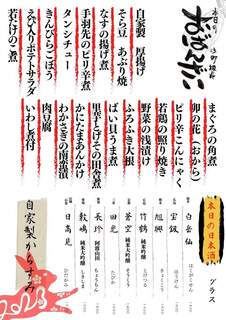 本日の
おばんざい
まぐろの角煮
卯の花（おから）
ピリ辛こんにゃく
若鶏の照り焼き
野菜の浅漬け
ふろふき大根
ばい貝うま煮
里芋とげその田舎煮
かにたまあんかけ
わかさぎの南蛮漬
自家製 厚揚げ
そら豆 あぶり焼
なすの揚げ煮
手羽先のピリ辛煮
タンシチュー
きんぴらごぼう
えび入りポテトサラダ
若たけのこ煮
肉豆腐
いわし煮付
本日の日本酒
グラス
白岳仙
宝剣
旭興
竹鶴 純米
蒼空 純米大吟醸
田光
長珍 阿波山田
敷嶋 純米大吟醸
日高見
自家製からすみ
2023